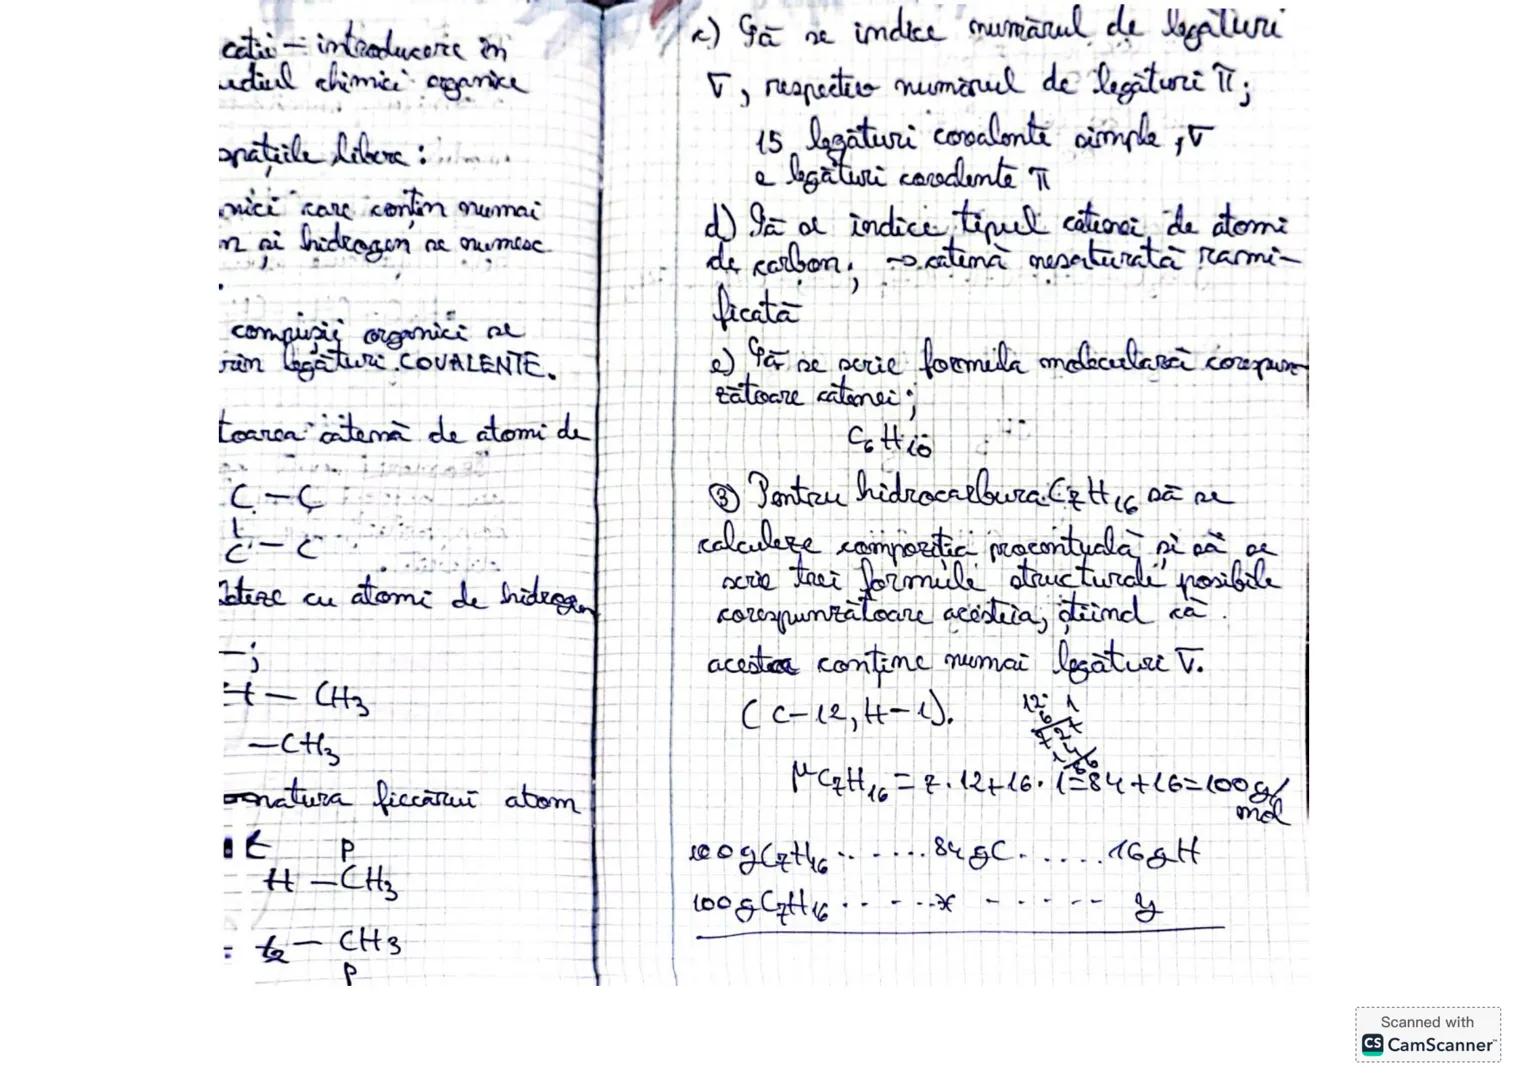 cații – introducere în
studiul chimiei organice
spațiile libere:
nici care conțin numai
n și hidrogen se numesc
compușii organici se
prin legături COVALENTE.
toarea catenă de atomi de
C – C
C – C
cu atomi de hidrogen
– ;
H – CH3
– CH3
natura fiecărui atom
t p
H – CH3
= – CH3
p
c) Să se indice numărul de legături
σ, respectiv numărul de legături π;
15 legături covalente simple, σ
2 legături covalente π
d) Să se indice tipul catenei de atomi
de carbon. → catenă nesaturată rami-
ficată
e) Să se scrie formula moleculară corespun-
zătoare catenei;
C6H10
③ Pentru hidrocarbura C7H16 să se
calculeze compoziția procentuală și să se
scrie trei formule structurale posibile
corespunzătoare acesteia, știind că
acestea conține numai legături σ.
(C-12, H-1).
μC7H16 = 7·12+16·1=84+16=100g/
mol
100gC7H16 ........84gC.......16gH
100gC7H16 ........x ........ y
Scanned with
CS CamScanner